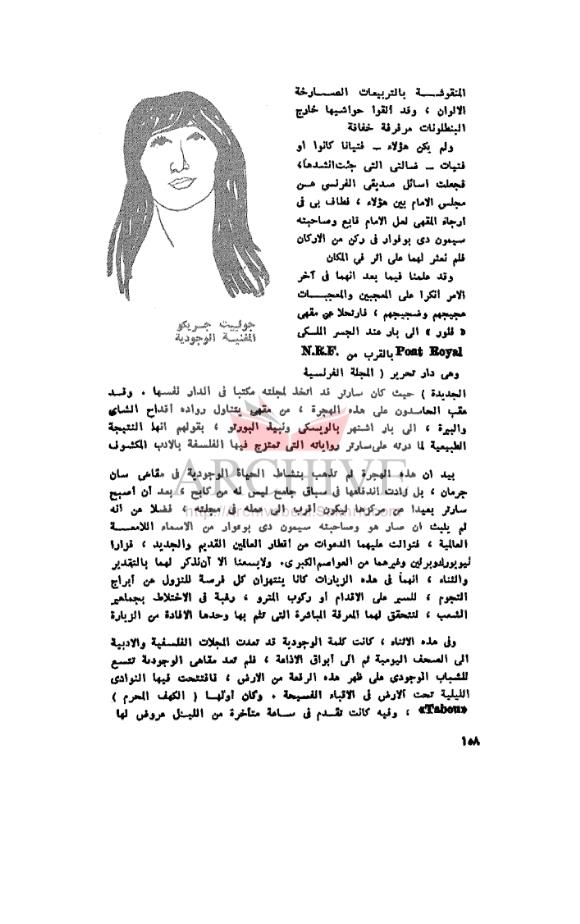 المنقوفة بالتربيعات الصارخة
الالوان ، وقد ألقوا حواشيها خارج
البنطلونات مرفرفة خفاقة
ولم يكن هؤلاء - فتيانا كانوا او
فتيات - ضالتى التى جئت انشدها،
فجعلت اسائل صديقى الفرنسى عن
مجلس الامام بين هؤلاء ، فطاف بى فى
ارجاء المقهى لعل الامام قابع وصاحبته
سيمون دى بوفوار فى ركن من الاركان
فلم نعثر لهما على اثر فى المكان
وقد علمنا فيما بعد انهما فى آخر
الامر أنكرا على المعجبين والمعجبات
عجيجهم وضجيجهم ، فارتحلا عن مقهى
« فلور » الى بار عند الجسر الملكى
Pont Royal بالقرب من N.R.F.
وهى دار تحرير ( المجلة الفرنسية
جولييت جريكو
المغنية الوجودية
الجديدة ) حيث كان سارتر قد اتخذ لمجلته مكتبا فى الدار نفسها . وقد
عقب الحاسدون على هذه الهجرة ، من مقهى يتناول رواده اقداح الشاى
والبيرة ، الى بار اشتهر بالويسكى ونبيذ البورتو ، بقولهم انها النتيجة
الطبيعية لما درته على سارتر رواياته التى تمتزج فيها الفلسفة بالادب المكشوف
بيد ان هذه الهجرة لم تذهب بنشاط الحياة الوجودية فى مقاهى سان
جرمان ، بل زادت اندفاعها فى سباق جامح ليس له من كابح ، بعد أن أصبح
سارتر بعيدا عن مركزها ليكون أقرب الى عمله فى مجلته ، فضلا عن انه
لم يلبث ان صار هو وصاحبته سيمون دى بوفوار من الاسماء اللامعة
العالمية ، فتوالت عليهما الدعوات من أقطار العالمين القديم والجديد ، فزارا
نيويورك وبرلين وغيرهما من العواصم الكبرى. ولا يسعنا الا أن نذكر لهما بالتقدير
والثناء ، انهما فى هذه الزيارات كانا ينتهزان كل فرصة للنزول عن أبراج
النجوم ، للسير على الاقدام أو ركوب المترو ، رغبة فى الاختلاط بجماهير
الشعب ، لتتحقق لهما المعرفة المباشرة التى تتم بها وحدها الافادة من الزيارة
وفى هذه الاثناء ، كانت كلمة الوجودية قد تعدت المجلات الفلسفية والادبية
الى الصحف اليومية ثم الى أبواق الاذاعة ، فلم تعد مقاهى الوجودية تتسع
للشباب الوجودى على ظهر هذه الرقعة من الارض ، فافتتحت فيها النوادى
الليلية تحت الارض فى الاقباء الفسيحة . وكان أولها ( الكهف المحرم )
«Tabou» ، وفيه كانت تقدم فى ساعة متأخرة من الليل عروض لها
١٥٨
ARCHIVE